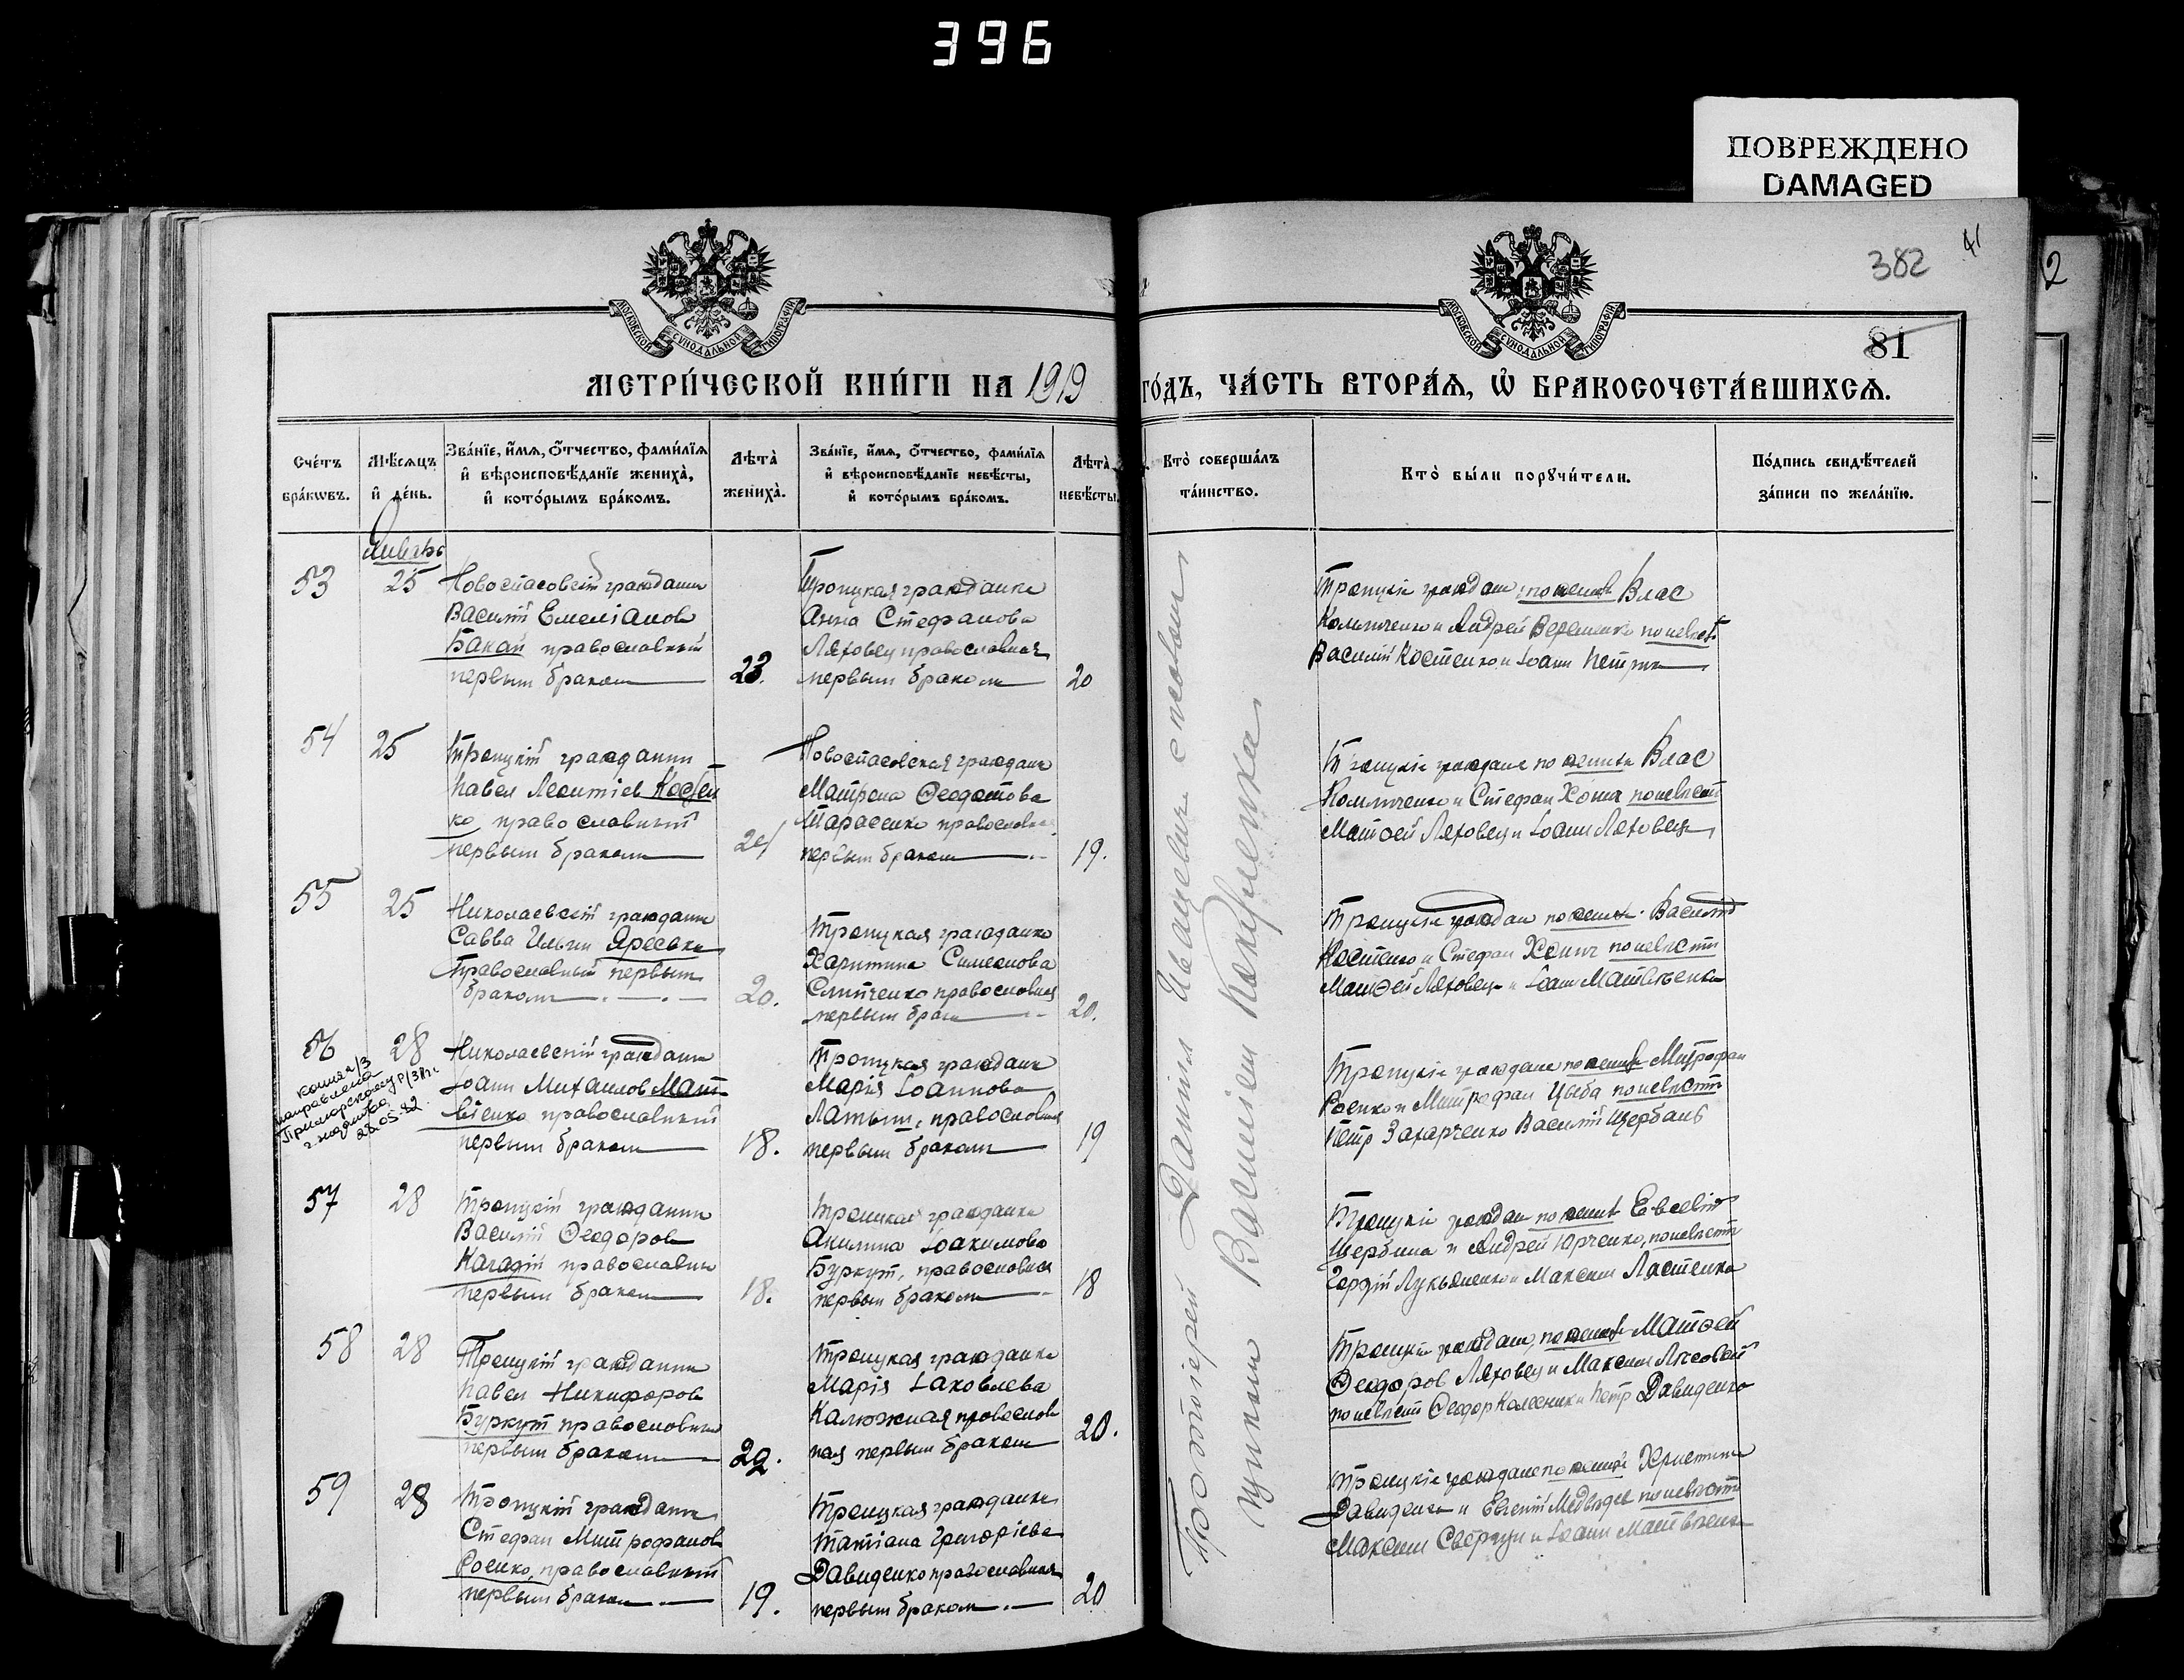 396
ПОВРЕЖДЕНО
DAMAGED
382
41
2
81
МОСКОВСКОЙ СѴНОДАЛЬНОЙ ТИПОГРАФІИ
МОСКОВСКОЙ СѴНОДАЛЬНОЙ ТИПОГРАФІИ
МЕТРИ́ЧЕСКОЙ КНИ́ГИ НА 1919
ГО́ДЪ, ЧА́СТЬ ВТОРА́Ѧ, Ѡ҆ БРАКОСОЧЕТА́ВШИХСѦ.
Сче́тъ
бра́кѡвъ.
Мѣ́сѧцъ
и҆ де́нь.
Зва́нїе, и҆́мѧ, ѻ҆́тчество, фами́лїѧ
и҆ вѣроисповѣ́данїе жениха̀,
и҆ кото́рымъ бра́комъ.
Лѣта̀
жениха̀.
Зва́нїе, и҆́мѧ, ѻ҆́тчество, фами́лїѧ
и҆ вѣроисповѣ́данїе невѣ́сты,
и҆ кото́рымъ бра́комъ.
Лѣта̀
невѣ́сты.
Кто̀ соверша́лъ
та́инство.
Кто̀ бы́ли порꙋчи́тели.
По́дпись свидѣ́телей
за́писи по жела́нїю.
Январь
53
25
Новоспасовскій гражданин
Василій Емеліанов
Бакай православный
первым браком
23.
Троицкая гражданка
Анна Стефанова
Ляховец православная
первым браком
20
Троицкіе граждане: по жениху Влас
и Андрей по невѣсте
Василій Костенко и Іоанн Петрик
54
25
Троицкій гражданин
Павел Леонтіев Костен
ко православный
первым браком
21
Новоспасовская гражданка
Матрона Феодотова
Тарасенко православная
первым браком
19.
Троицкіе граждане по жениху Влас
и Стефан Хомич по невѣсте
Матфей Ляховец и Іоанн Ляховец
55
25
Николаевскій гражданин
Савва Ильин Яресько
православный первым
браком
20.
Троицкая гражданка
Харитина Симеонова
Слипченко православная
первым брак
20.
Троицкіе граждане по жениху Василій
Костенко и Стефан Хомич по невѣсте
Матфей Ляховец и Іоанн Матвѣенко
56
28
копия а/з
направлена
Приморскому Р/ЗАГС
г. Жданова
28.05.82
Николаевскій гражданин
Іоанн Михаилов Мат-
віенко православный
первым браком
18.
Троицкая гражданка
Марія Іоаннова
Латыш, православная
первым браком
19
Троицкіе граждане по жениху Митрофан
Роенко и Митрофан Цыба по невѣсте
Петр Захарченко Василій Щербань
57
28
Троицкій гражданин
Василій Феодоров
православный
первым браком
18.
Троицкая гражданка
Акилина Іоакимова
Буркут, православная
первым браком
18
Троицкіе граждане по жениху Евсевій
Щербина и Андрей Юрченко, по невѣсте
Гордій Лукьяненко и Максим Ластенко
58
28
Троицкій гражданин
Павел Никифоров
Буркут православный
первым браком
22.
Троицкая гражданка
Марія Іаковлева
Калюжная православ
ная первым браком
20.
Троицкіе граждане, по жениху Матфей
Феодоров Ляховец и Максим Лѣсовой
по невѣсте Феодор Колесник и Петр Давиденко
59
28
Троицкій гражданин
Стефан Митрофанов
Роенко, православный
первым браком
19.
Троицкая гражданка
Татіана Григоріева
Давиденко православная
первым браком
20
Троицкіе граждане по жениху
Давиденко и Евгеній Медвѣдев по невѣсте
Максим и Іоанн Матвѣенко
Протоіерей Даніил Иванцевич с псалом
щиком Василіем